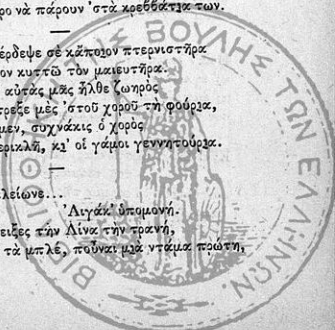 ρο νὰ πάρουν 'στὰ κρεββάτια των.
έρδεψε σὲ κάποιον πτερνιστῆρα
ον κυττῶ τὸν μαιευτῆρα.
αὐτὰς μᾶς ἦλθε ζωηρὸς
τρεξε μὲς 'στοῦ χοροῦ τὴ φούρια,
μεν, συχνάκις ὁ χορὸς
ερικλῆ, κι' οἱ γάμοι γεννητούρια.
λείωνε...
'Λιγάκ' ὑπομονή.
ειξες τὴν Λίνα τὴν τρανή,
τὰ μπλέ, ποὖναι μιὰ ντάμα πρώτη,
ΒΙΒΛΙΟΘΗΚΗ ΤΗΣ ΒΟΥΛΗΣ ΤΩΝ ΕΛΛΗΝΩΝ